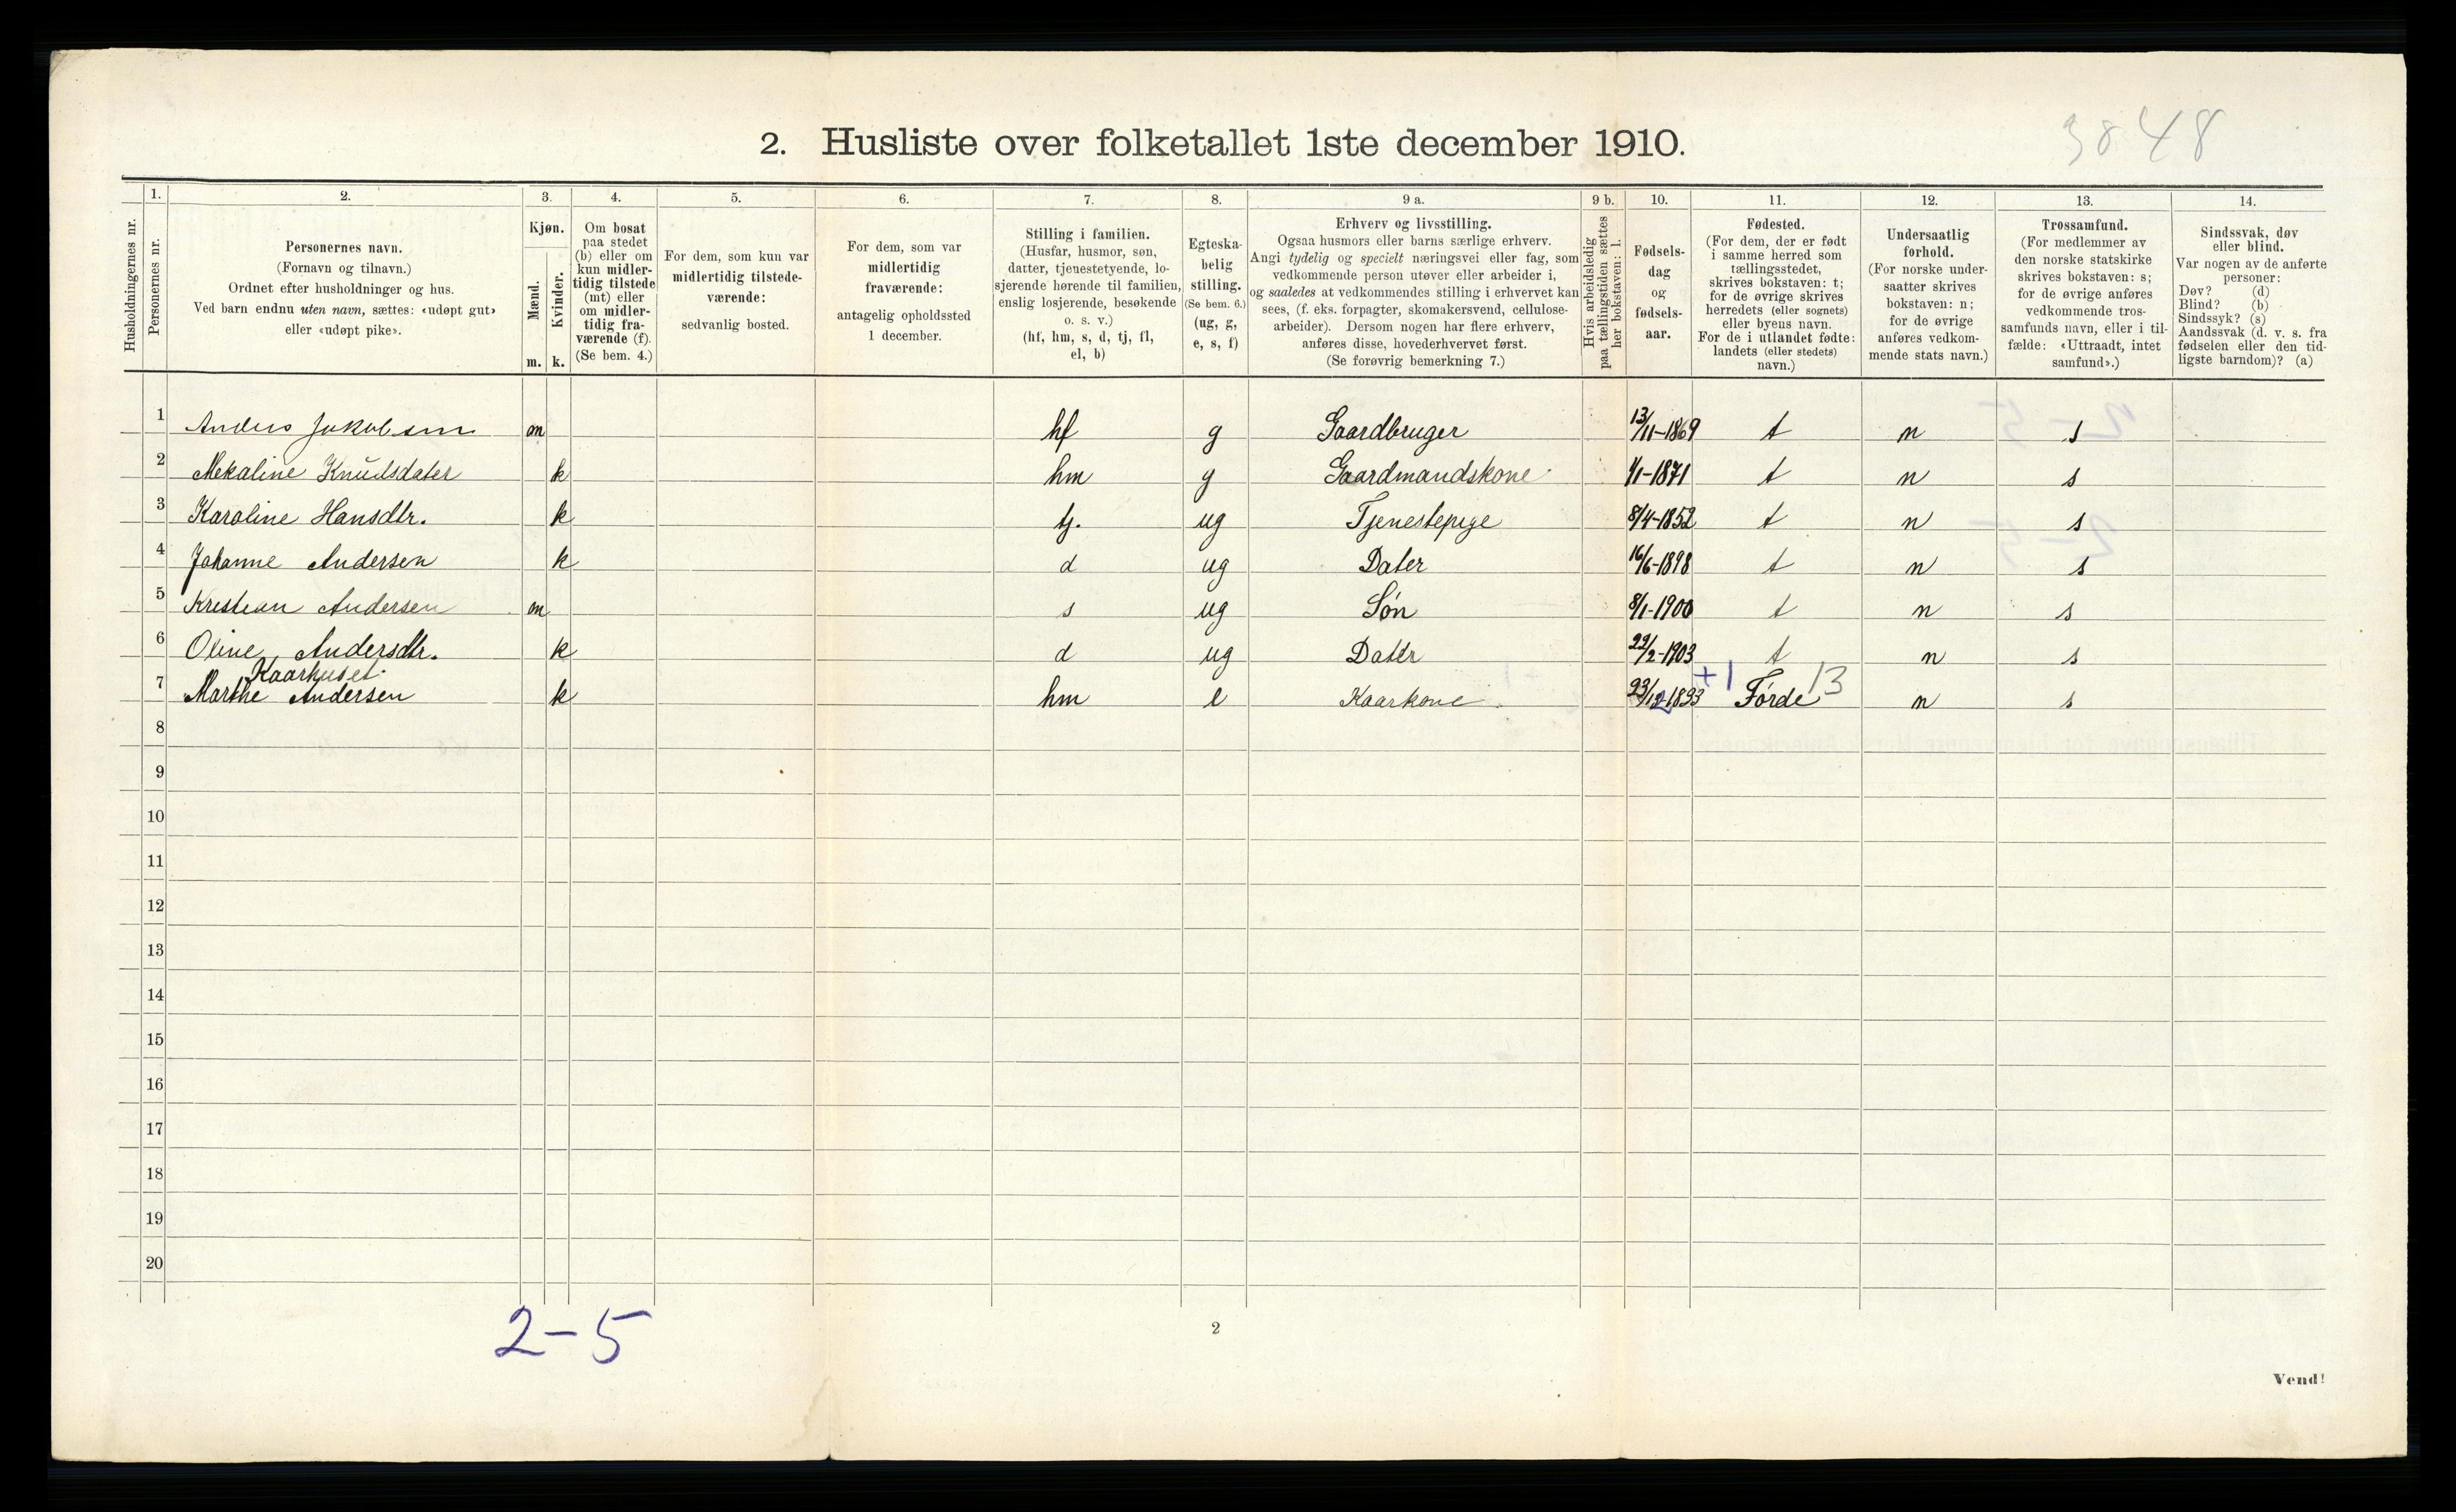 3848
2. Husliste over folketallet 1ste december 1910.
Husholdningernes nr.
1.
Personernes nr.
2.
Personernes navn.
(Fornavn og tilnavn.)
Ordnet efter husholdninger og hus.
Ved barn endnu uten navn, sættes: «udøpt gut»
eller «udøpt pike».
3.
Kjøn.
Mænd.
Kvinder.
m. k.
4.
Om bosat
paa stedet
(b) eller om
kun midler-
tidig tilstede
(mt) eller
om midler-
tidig fra-
værende (f).
(Se bem. 4.)
5.
For dem, som kun var
midlertidig tilstede-
værende:
sedvanlig bosted.
6.
For dem, som var
midlertidig
fraværende:
antagelig opholdssted
1 december.
7.
Stilling i familien.
(Husfar, husmor, søn,
datter, tjenestetyende, lo-
sjerende hørende til familien,
enslig losjerende, besøkende
o. s. v.)
(hf, hm, s, d, tj, fl,
el, b)
8.
Egteska-
belig
stilling.
(Se bem. 6.)
(ug, g,
e, s, f)
9 a.
Erhverv og livsstilling.
Ogsaa husmors eller barns særlige erhverv.
Angi tydelig og specielt næringsvei eller fag, som
vedkommende person utøver eller arbeider i,
og saaledes at vedkommendes stilling i erhvervet kan
sees, (f. eks. forpagter, skomakersvend, cellulose-
arbeider). Dersom nogen har flere erhverv,
anføres disse, hovederhvervet først.
(Se forøvrig bemerkning 7.)
9 b.
Hvis arbeidsledig
paa tællingstiden sættes
her bokstaven: l.
10.
Fødsels-
dag
og
fødsels-
aar.
11.
Fødested.
(For dem, der er født
i samme herred som
tællingsstedet,
skrives bokstaven: t;
for de øvrige skrives
herredets (eller sognets)
eller byens navn.
For de i utlandet fødte:
landets (eller stedets)
navn.)
12.
Undersaatlig
forhold.
(For norske under-
saatter skrives
bokstaven: n;
for de øvrige
anføres vedkom-
mende stats navn.)
13.
Trossamfund.
(For medlemmer av
den norske statskirke
skrives bokstaven: s;
for de øvrige anføres
vedkommende tros-
samfunds navn, eller i til-
fælde: «Uttraadt, intet
samfund».)
14.
Sindssvak, døv
eller blind.
Var nogen av de anførte
personer:
Døv? (d)
Blind? (b)
Sindssyk? (s)
Aandssvak (d. v. s. fra
fødselen eller den tid-
ligste barndom)? (a)
1 Anders Jakobsen m hf g Gaardbruger 13/11-1869 t n s
2 Mekaline Knudsdater k hm g Gaardmandskone 1/1-1871 t n s
3 Karoline Hansdtr. k tj. ug Tjenestepige 8/4-1852 t n s
4 Johanne Andersen k d ug Dater 16/6-1898 t n s
5 Kristian Andersen m s ug Søn 8/1-1900 t n s
6 Oline Andersdtr. k d ug Dater 22/2-1903 t n s
Kaarhuset +1 13
7 Marthe Andersen k hm e Kaarkone 23/12 1833 Førde n s
8
9
10
11
12
13
14
15
16
17
18
19
20
2-5
2
Vend!